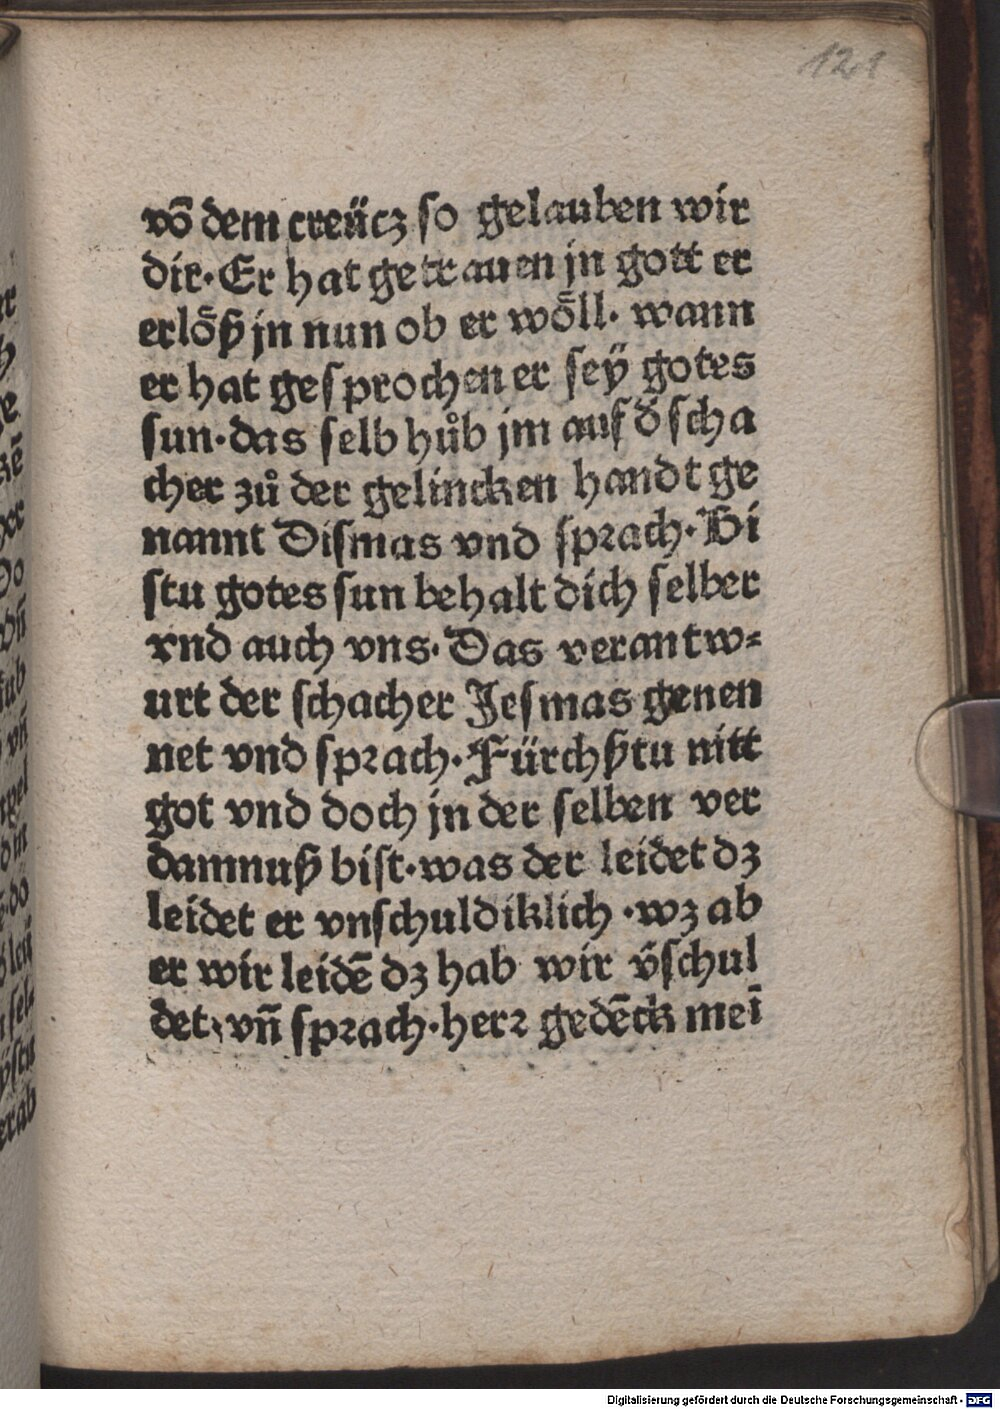 121
võ dem creücz so gelauben wir
dir· Er hat getrauen jn gott er
erlöß jn nun ob er wöll· wann
er hat gesprochen er seÿ gotes
sun· das selb hůb jm auf d̕ scha
cher zů der gelincken handt ge
nannt Dismas vnd sprach· Bi
stu gotes sun behalt dich selber
vnd auch vns· Das verantw-
urt der schacher Jesmas genen
net vnd sprach· Fürchßtu nitt
got vnd doch jn der selben ver
damnuß bist· was der leidet dz
leidet er vnschuldiklich ·wz ab
er wir leidē dz hab wir v̄schul
det· vn̄ sprach· herr gedēck mei̅
Digitalisierung gefördert durch die Deutsche Forschungsgemeinschaft - DFG